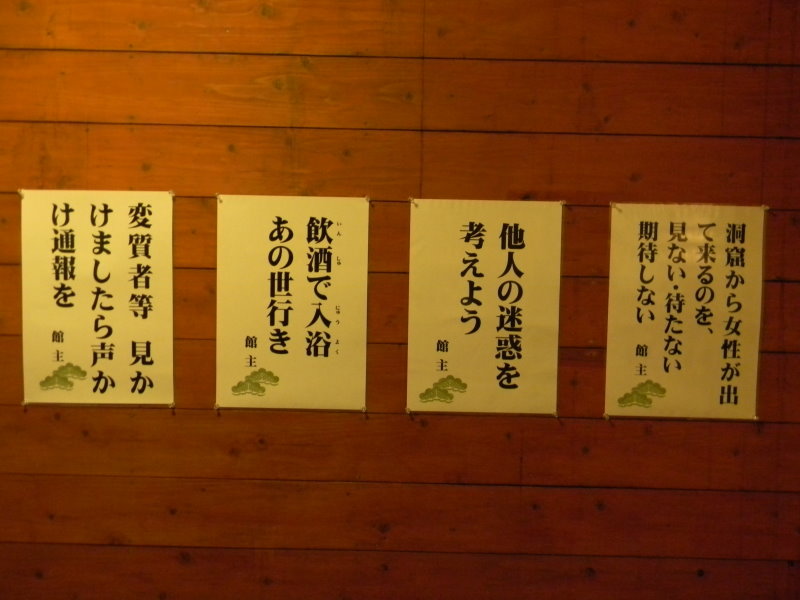 洞窟から女性が出
て来るのを、
見ない・待たない
期待しない
館主
他人の迷惑を
考えよう
館主
飲酒で入浴
いんしゅ にゅうよく
あの世行き
館主
変質者等 見か
けましたら声か
け通報を
館主